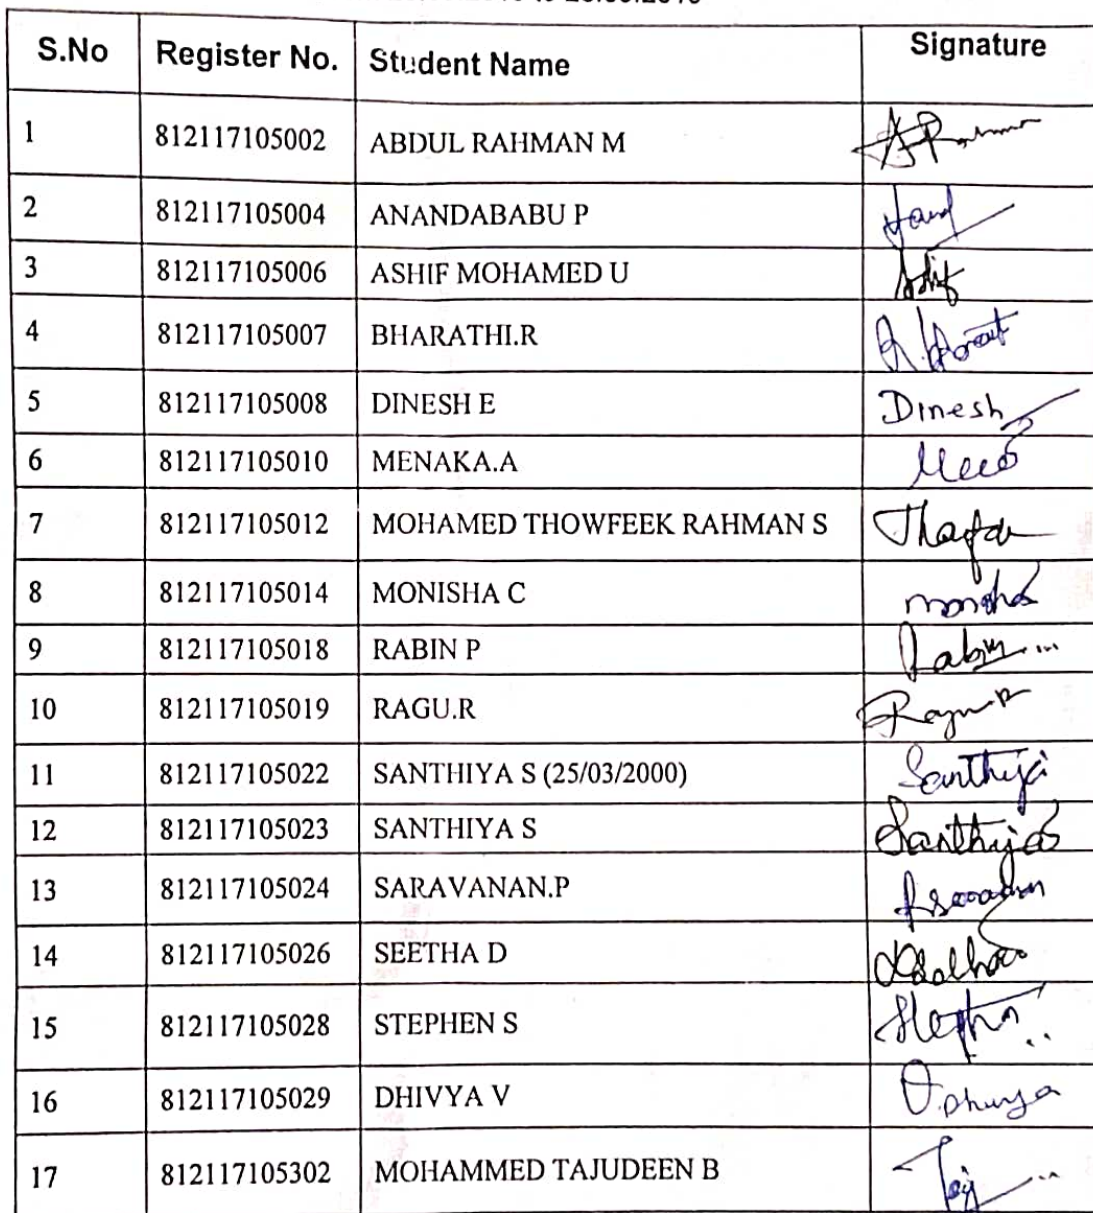 S.No Register No. Student Name Signature
1 812117105002 ABDUL RAHMAN M
2 812117105004 ANANDABABU P
3 812117105006 ASHIF MOHAMED U Ashif
4 812117105007 BHARATHI.R
5 812117105008 DINESH E Dinesh
6 812117105010 MENAKA.A
7 812117105012 MOHAMED THOWFEEK RAHMAN S
8 812117105014 MONISHA C monisha
9 812117105018 RABIN P Rabin
10 812117105019 RAGU.R
11 812117105022 SANTHIYA S (25/03/2000) Santhiya
12 812117105023 SANTHIYA S Santhiya
13 812117105024 SARAVANAN.P
14 812117105026 SEETHA D
15 812117105028 STEPHEN S
16 812117105029 DHIVYA V
17 812117105302 MOHAMMED TAJUDEEN B Taj